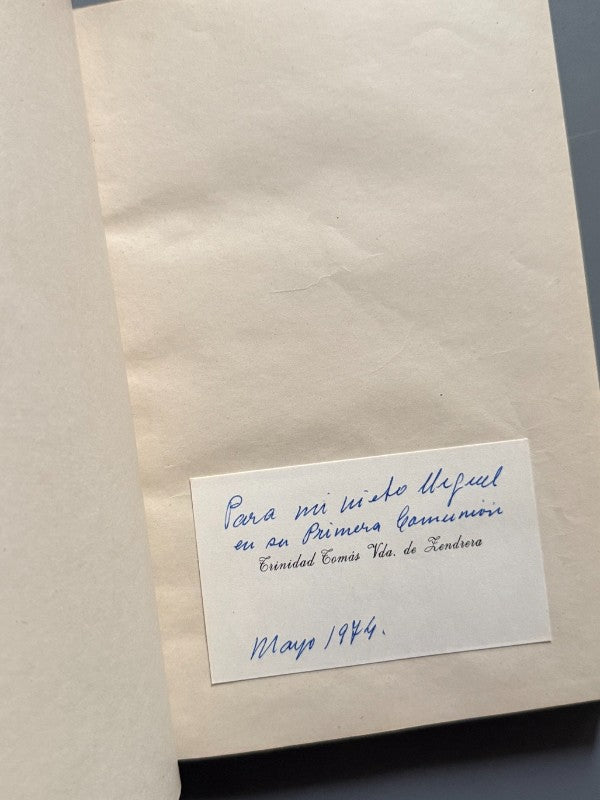 Para mi nieto Miguel
en su Primera Comunión
Trinidad Tomás Vda. de Zendrera
Mayo 1974.